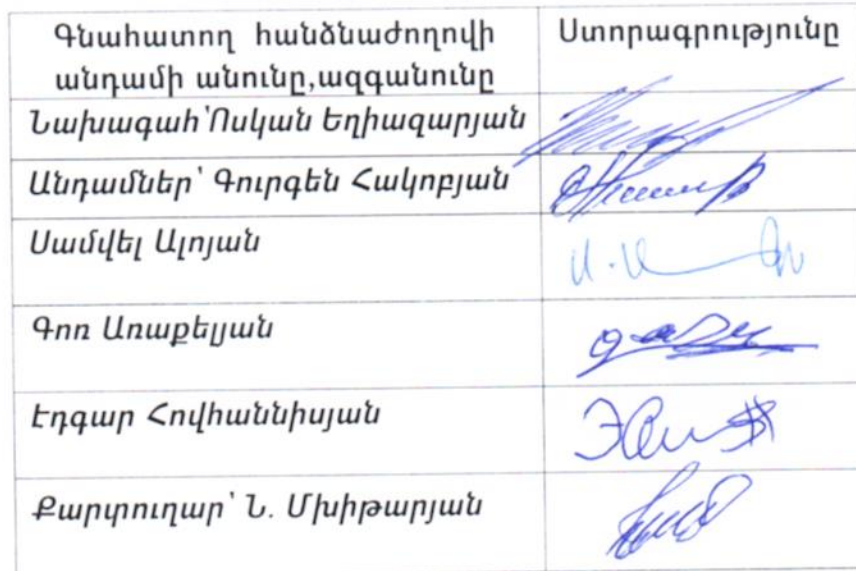 Գնահատող հանձնաժողովի
անդամի անունը,ազգանունը
Ստորագրությունը
Նախագահ՝Ոսկան Եղիազարյան
Անդամներ՝ Գուրգեն Հակոբյան
Սամվել Ալոյան
Գոռ Առաքելյան
Էդգար Հովհաննիսյան
Քարտուղար՝ Ն. Մխիթարյան